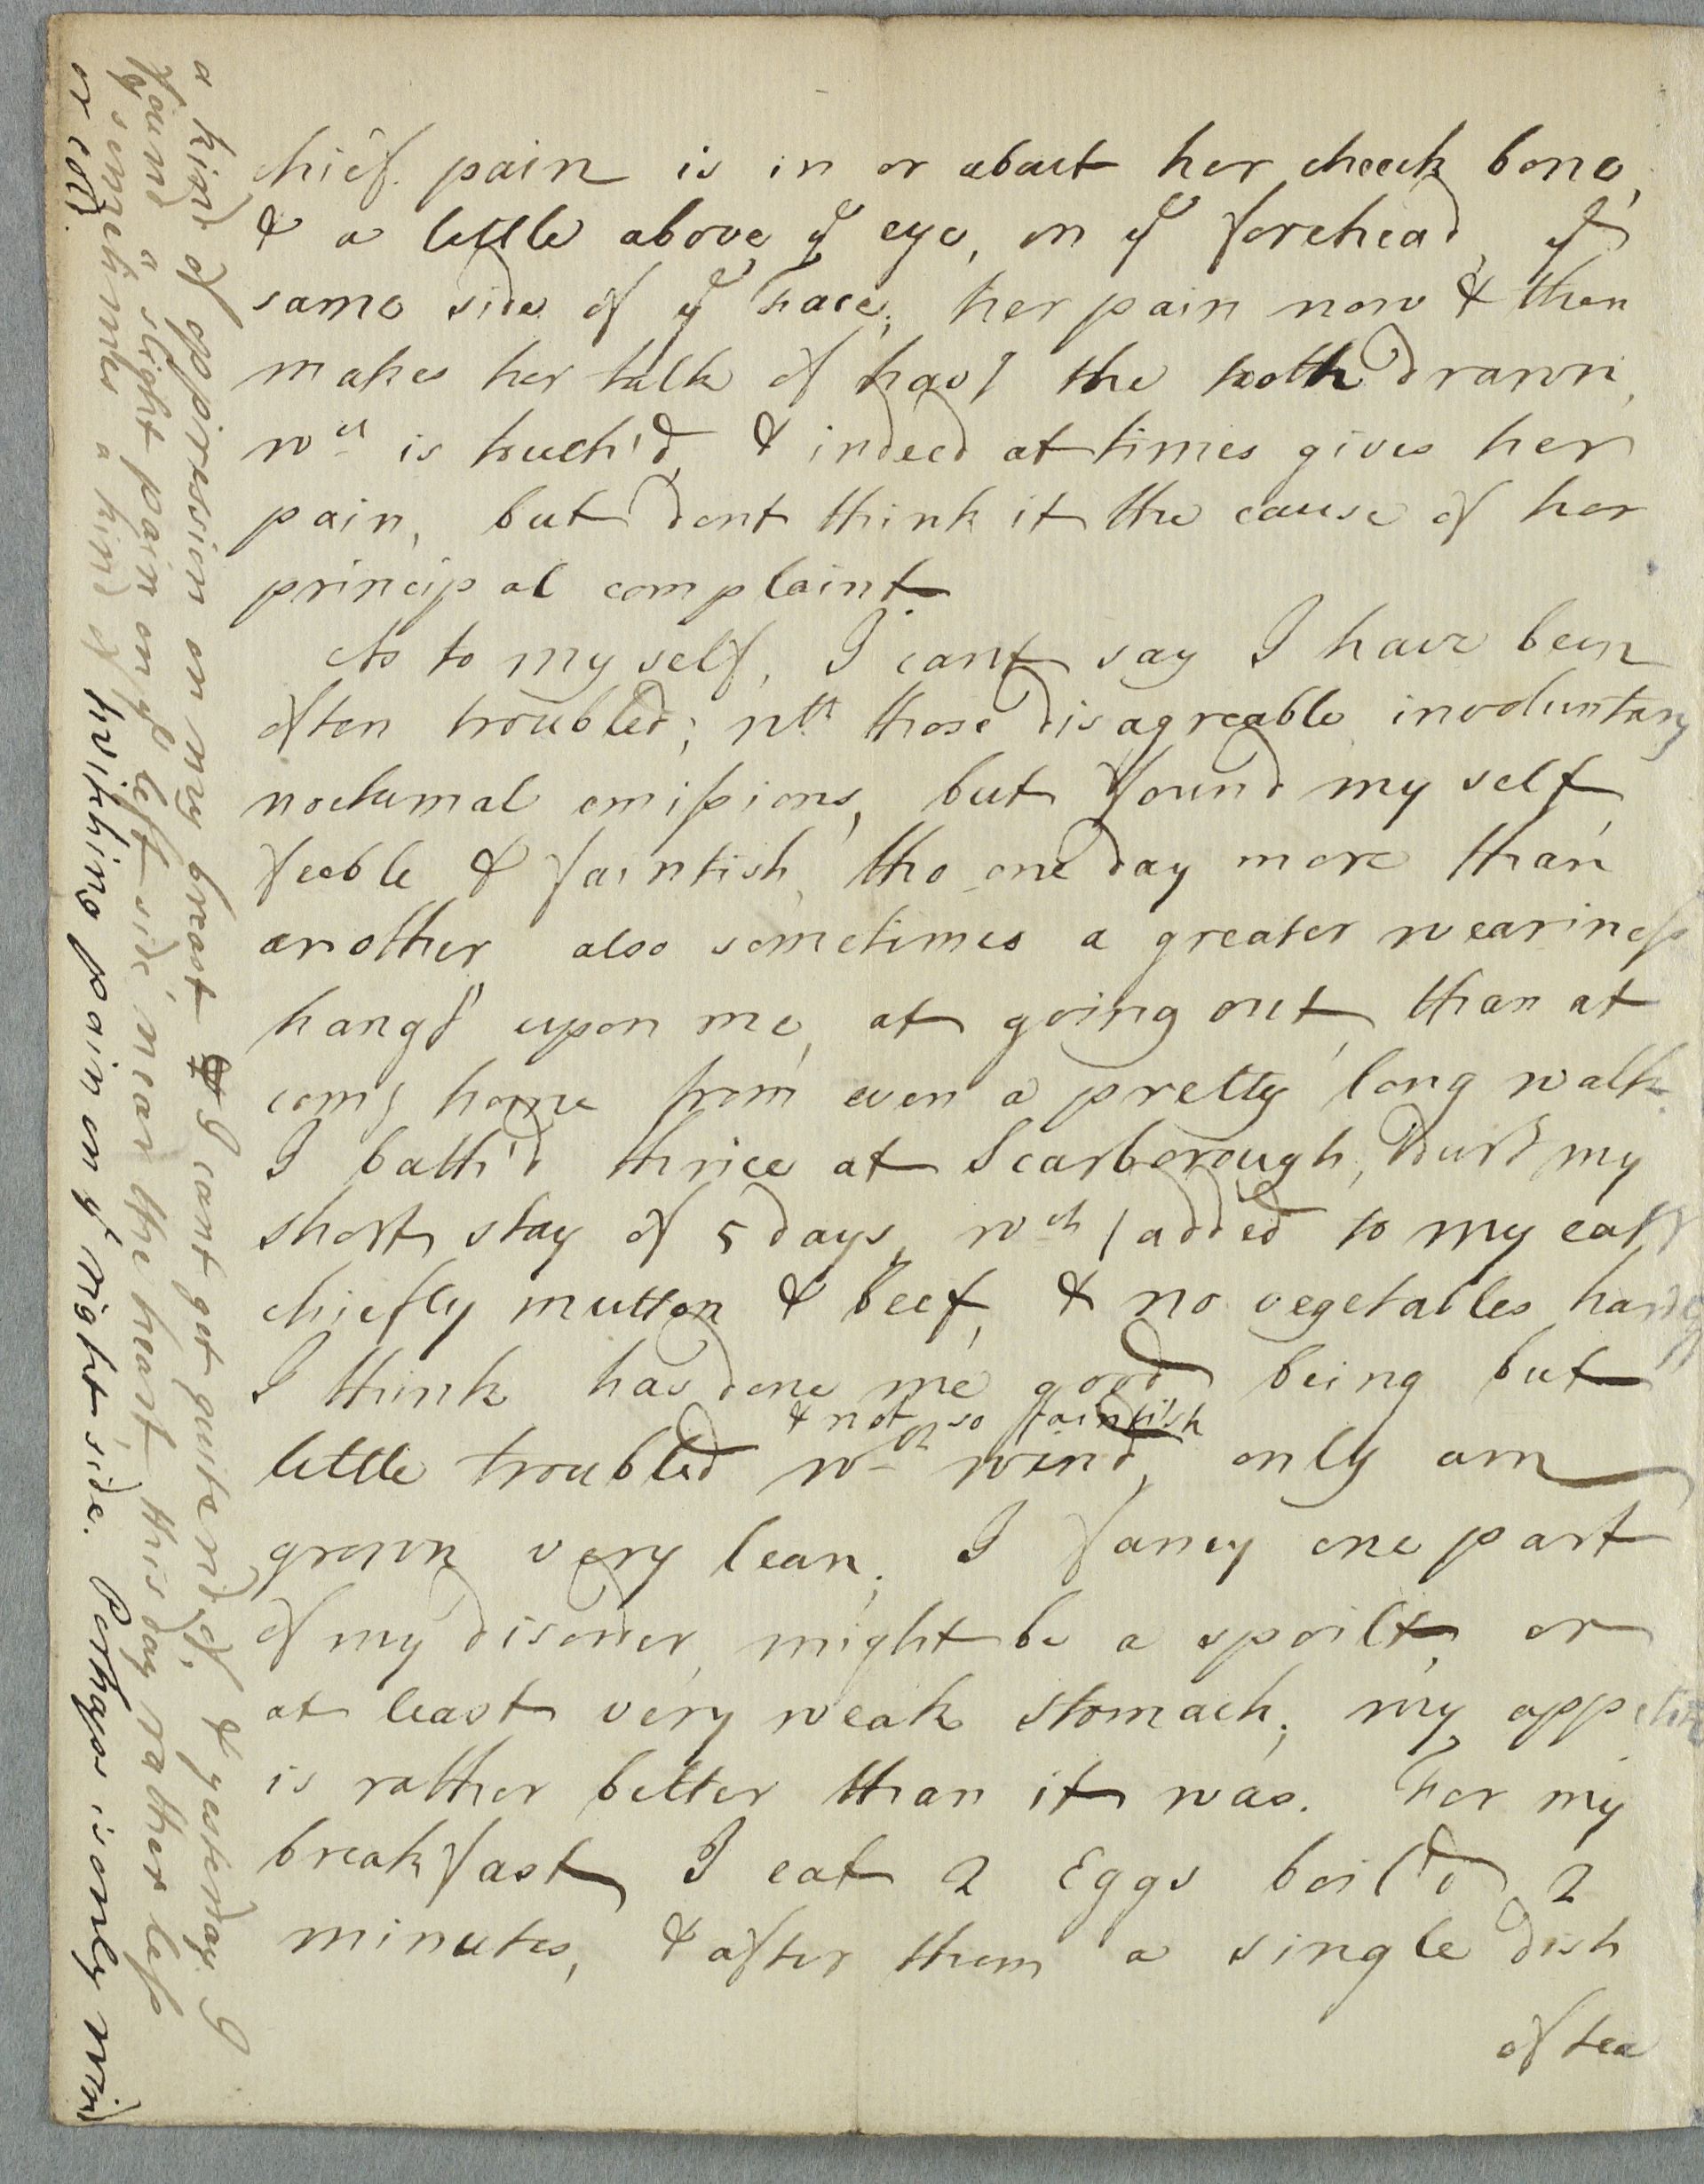 chief pain is in or about her cheek bone,
& a little above yͤ eye, on yͤ forehead, yͤ
same side of yͤ Face; her pain now & then
makes her talk of havᵍ the tooth drawn,
wᶜʰ is touch'd, & indeed at times gives her
pain, but dont think it the cause of her
principal complaint.
As to my self, I cant say I have been
often troubled; wᵗʰ those disagreable involuntary
nocturnal emiſsions, but found my self
feeble & faintish, tho one day more than
another also sometimes a greater wearineſs
hangᵍ upon me, at going out, than at
comᵍ home from even a pretty long walk.
I bath'd thrice at Scarborough, durᵍ my
short stay of 5 days, wᶜʰ added to my eatᵍ
chiefly mutton & beef, & no vegetables hardly
I think has done me good being but
& not so faintish
little troubled wᵗʰ wind, only am
grown very lean; I fancy one part
of my disorder, might be a spoilt, or
at least very weak stomach; my appetite
is rather better than it was. For my
breakfast I eat 2 Eggs boil'd 2
minutes, & after them a single dish
of tea
a kind of oppression on my breast I cant get quite rid of, & yesterday I
found a slight pain on yͤ left side, near the heart, this day rather leſs
& sometimes a kind of twitching pain on yͤ right side. Perhaps is only wind
or cold.